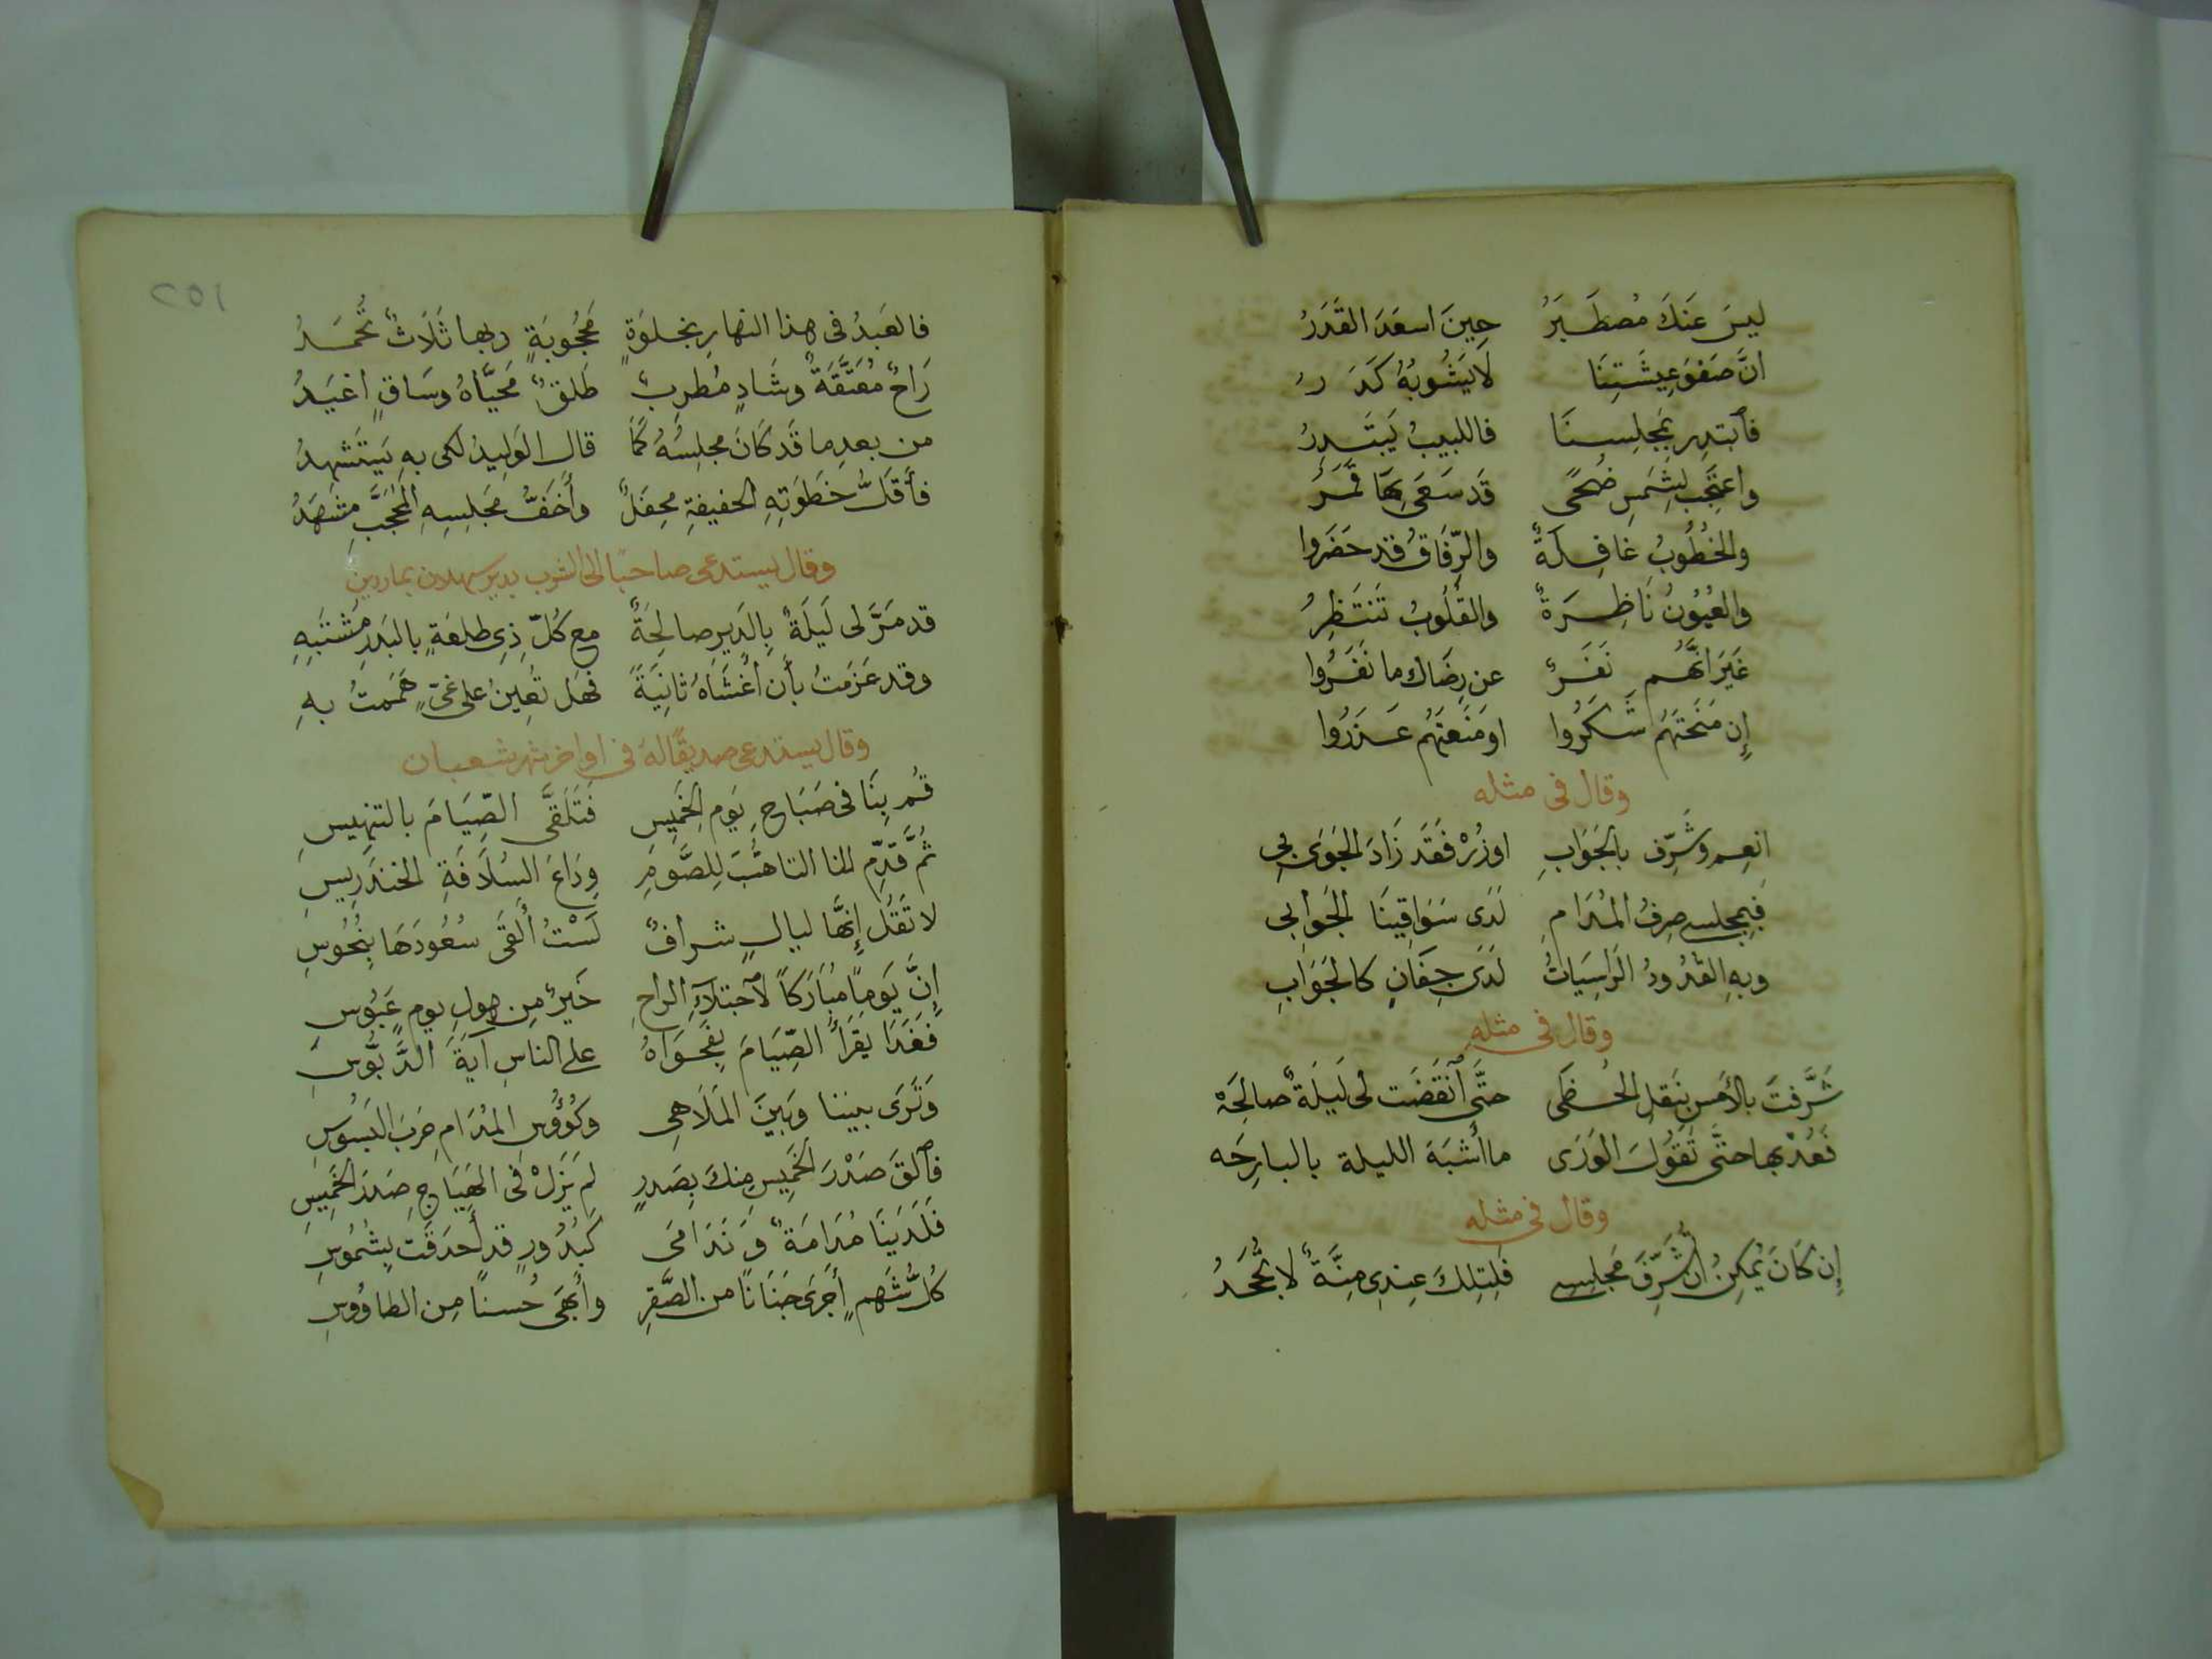 ليسَ عَنكَ مُصطَبَرُ حِينَ اسعَدَ القَدَرُ
انَّ صَفوَ عِيشَتِنَا لَا يَشُوبُهُ كَدَرُ
فَابتدِر بِمَجلِسِنَا فاللبيبُ يَبتَدِرُ
واعتَجِب لِشَمسِ ضُحًى قَد سَعَى بِهَا قَمَرُ
والخُطُوبُ غَافِلَةٌ والرِّفَاقُ قد حَضَروا
والعُيُونُ نَاظِرَةٌ والقُلُوبُ تَنتَظِرُ
غَيرَ انَّهُم نَفَرٌ عن رِضَاك ما نَفَرُوا
إن مَنَحتَهُم شَكَرُوا او مَنَعتَهُم عَذَرُوا
وقال فى مثله
انعِم وشَرِّف بالجَوَابِ اوزُرْ فَقَد زَادَ الجَوَى بِى
فَبِمجلسى صِرفُ المُدَامِ لَدَى سَوَاقِينَا الجَوابى
وبهِ القُدُورُ الرَاسِيَاتُ لَدَى جِفَانٍ كالجَوَابِ
وقال فى مثلهِ
شَرَّفتَ بالأمسِ بِنَقلِ الخُطَى حتَّى اَنقَضَت لى لَيلَةٌ صالِحَهْ
فَعُد بها حتى تَقولَ الوَرَى ما أشبَهَ الليلة بالبارِحَه
وقال فى مثله
إن كَانَ يُمكِنُ أن تُشَرِّفَ مَجلِسِى فَلِتِلكَ عِندِى مِنَّةٌ لا تُجحَدُ
٢٥١
فالعَبدُ فى هذا النهارِ بخلوَةٍ مَحجُوبَةٍ وبها ثَلَاثٌ تُحمَدُ
رَاحٌ مُعَتَّقَةٌ وشَادٍ مُطرِبٌ طَلقٌ مُحَيَّاهُ وسَاقٍ اغيَدُ
من بعدِ ما قَد كَانَ مجلِسُهُ كَمَا قال الوَلِيدُ لكى بهِ يَستَشهِدُ
فأقَلُّ خَطوَتِهِ الخفيفةِ محفَلٌ وأخَفُّ مَجلِسِهِ المُحَجَّبِ مشهَدُ
وقال يستدعى صاحبًا الى الشرب بدير سهلان بماردين
قد مَرَّ لى لَيلَةٌ بِالدَيرِ صالِحَةٌ مع كُلِّ ذِى طلعَةٍ بالبَدرِ مُشتَبِهِ
وقد عَزَمتُ بأن أغشَاهُ ثانِيَةً فهَل تُعِينُ على غَىٍّ هَمَمتُ بهِ
وقال يستدعى صديقًا له فى اواخر شهر شعبان
قُم بِنَا فى صَبَاحِ يَومِ الخَمِيسِ فَتَلَقَّى الصِّيَامَ بالتنهيسِ
ثُمَّ قَدِّم لنا التاهُّبَ لِلصَّومِ وِدَاعَ السُلَافَةِ الخندَرِيسِ
لا تَقُل إنَّها ليالٍ شرافٌ لَسْتُ أُلقَى سُعُودَهَا بِنُحُوسِ
إنَّ يَومًا مُبَارَكًا لاَجتلآءِ الراحِ خَيرٌ مِن هولِ يومٍ عَبُوسِ
فَغَدَا يَقرَأُ الصِّيَامَ بِفَحوَاهُ على الناسِ آيَةَ الدَّبُّوسِ
وَتَرَى بيننا وبَينَ المَلَاهِى وكُؤُوسِ المُدَامِ حَربَ البَسُوسِ
فَالقَ صَدْرَ الخَمِيسِ مِنكَ بِصَدرٍ لم يَزَلْ فى الهِيَاجِ صَدرَ الخَمِيسِ
فَلَدَينَا مُدَامَةٌ وَنَدَامَى كَبُدُورٍ قد أحدَقَت بِشُمُوسِ
كُلُّ شَهمٍ أجرَى جَنَانًا من الصَّقرِ وأبهَى حُسنًا مِن الطاوُوسِ